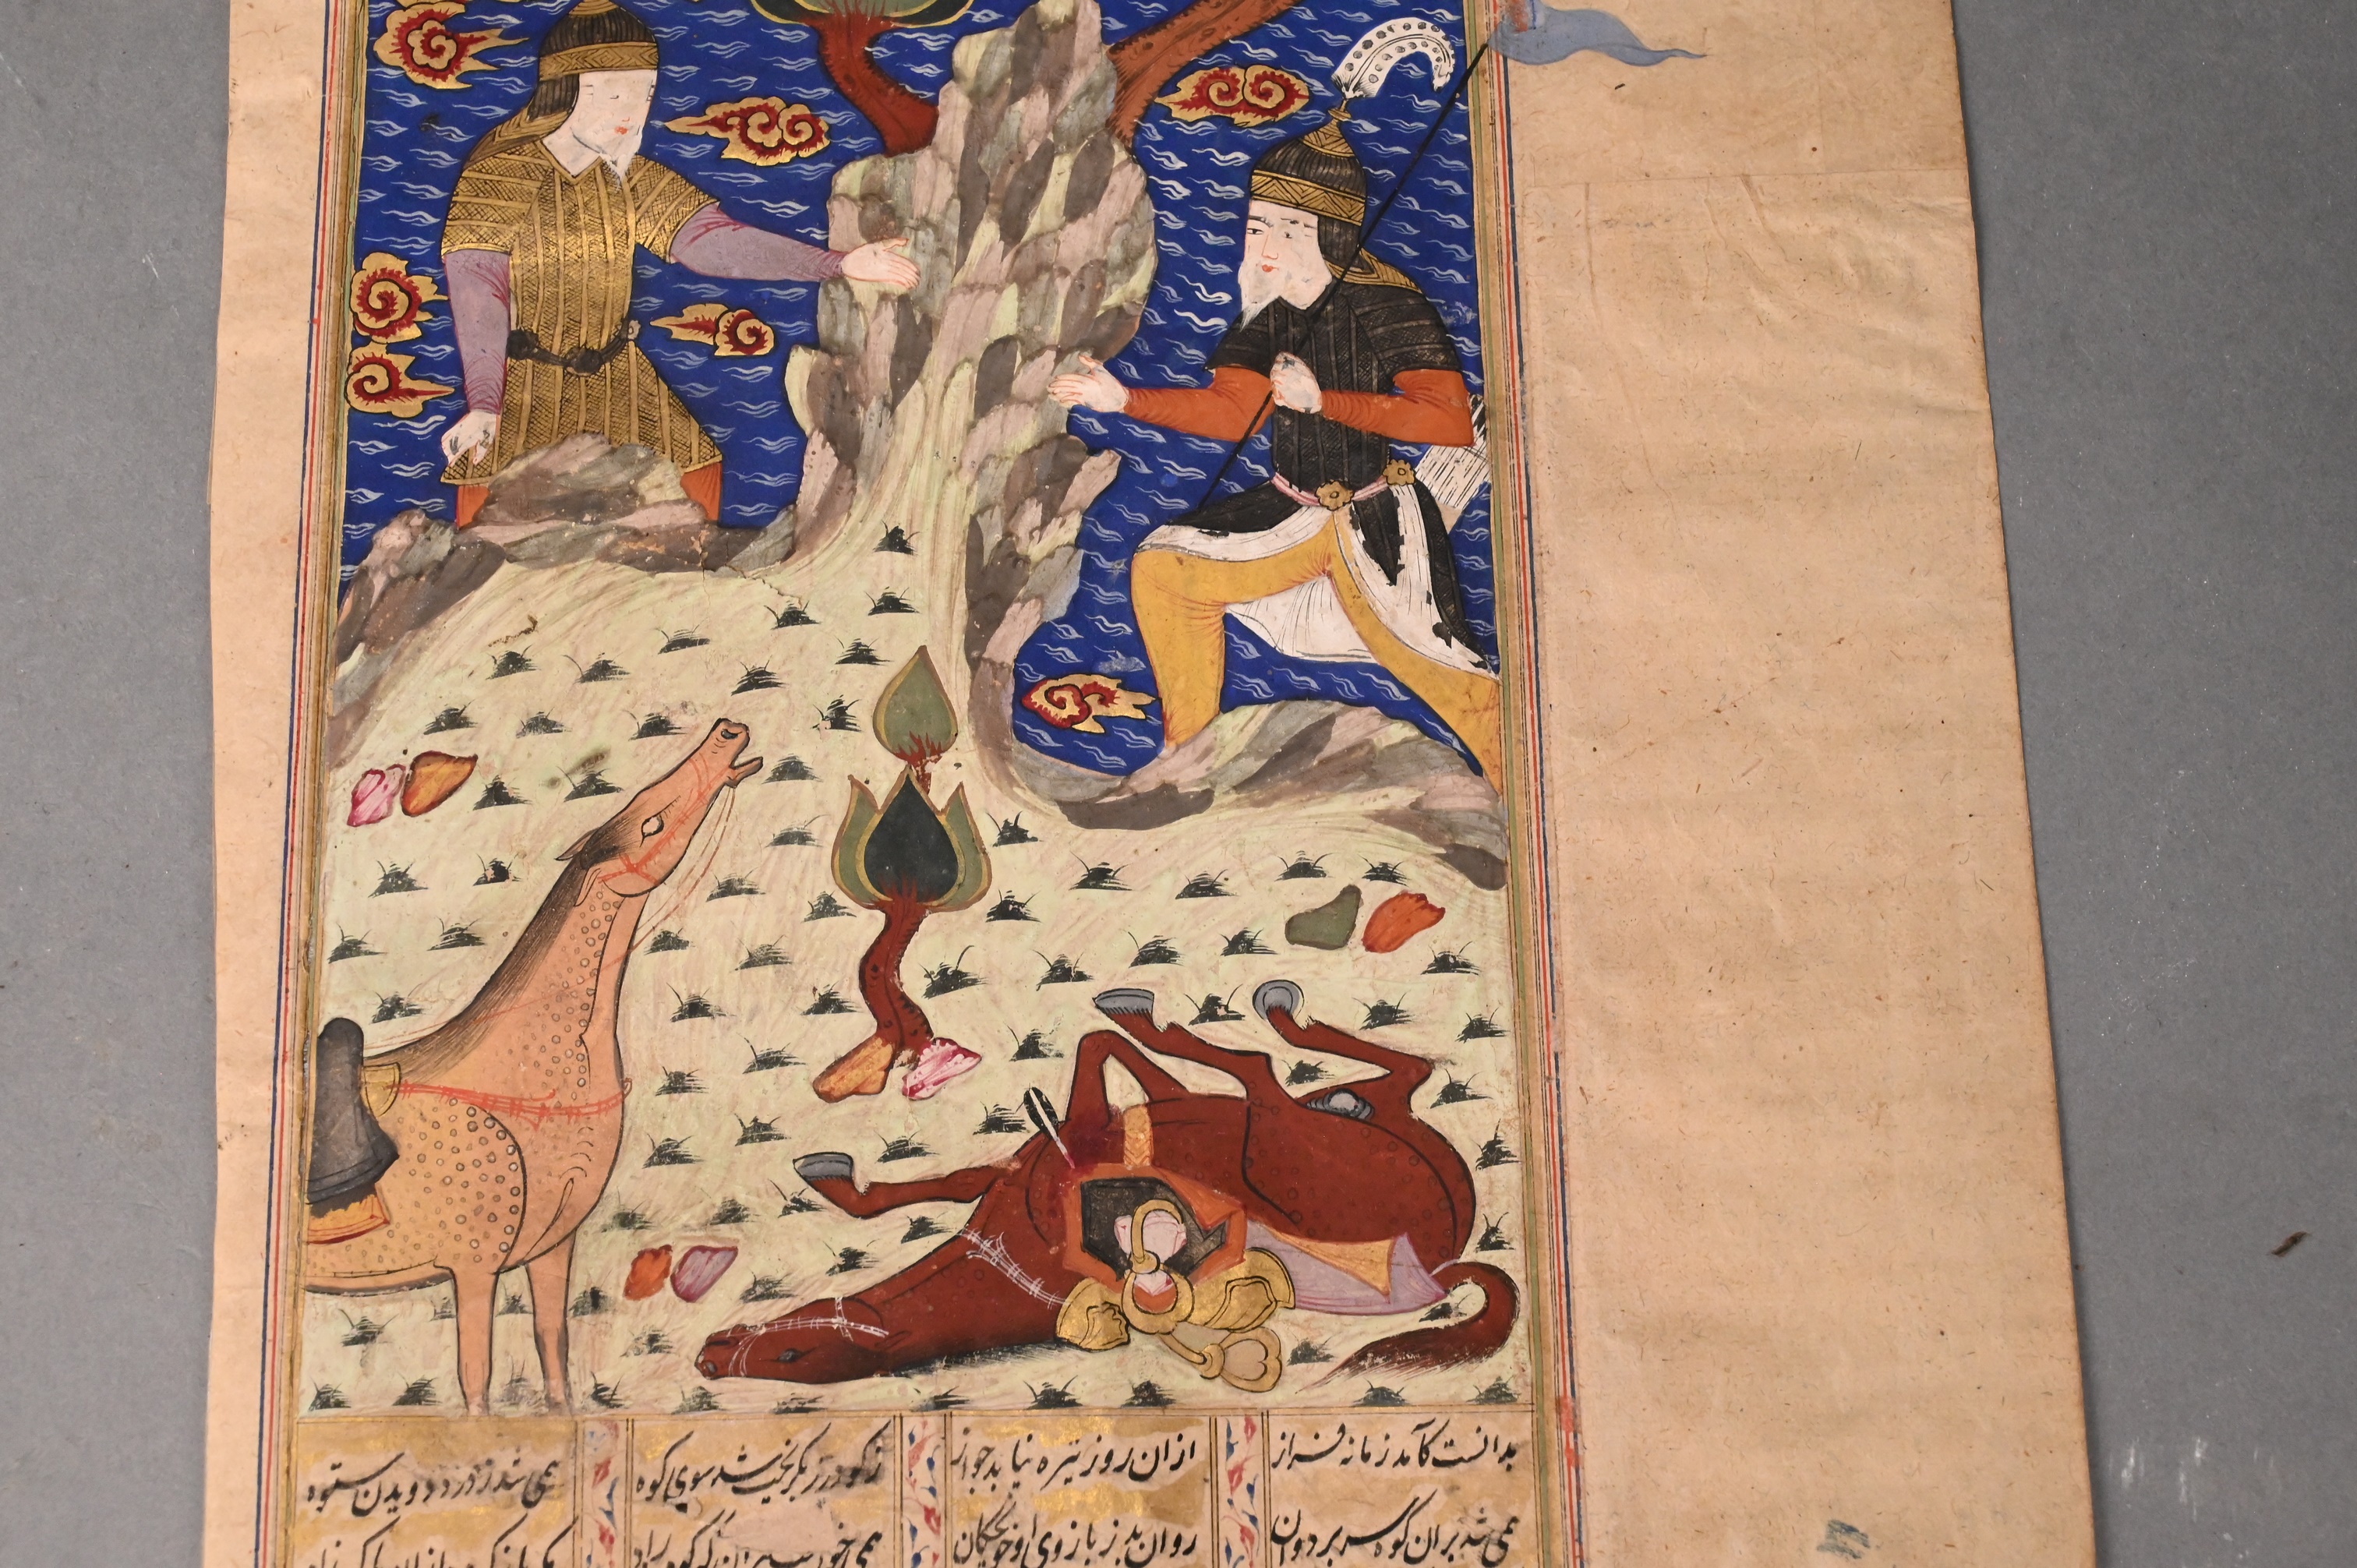 بدانست کآمد زمانه فراز ازان روز تیره نیابد جواز ز گودرز بگریخت شد سوی کوه همی شد ز درد دویدن ستوه
همی شد بران کوه سر بر دوان روان بد ز بازوی او خون چکان همی خون